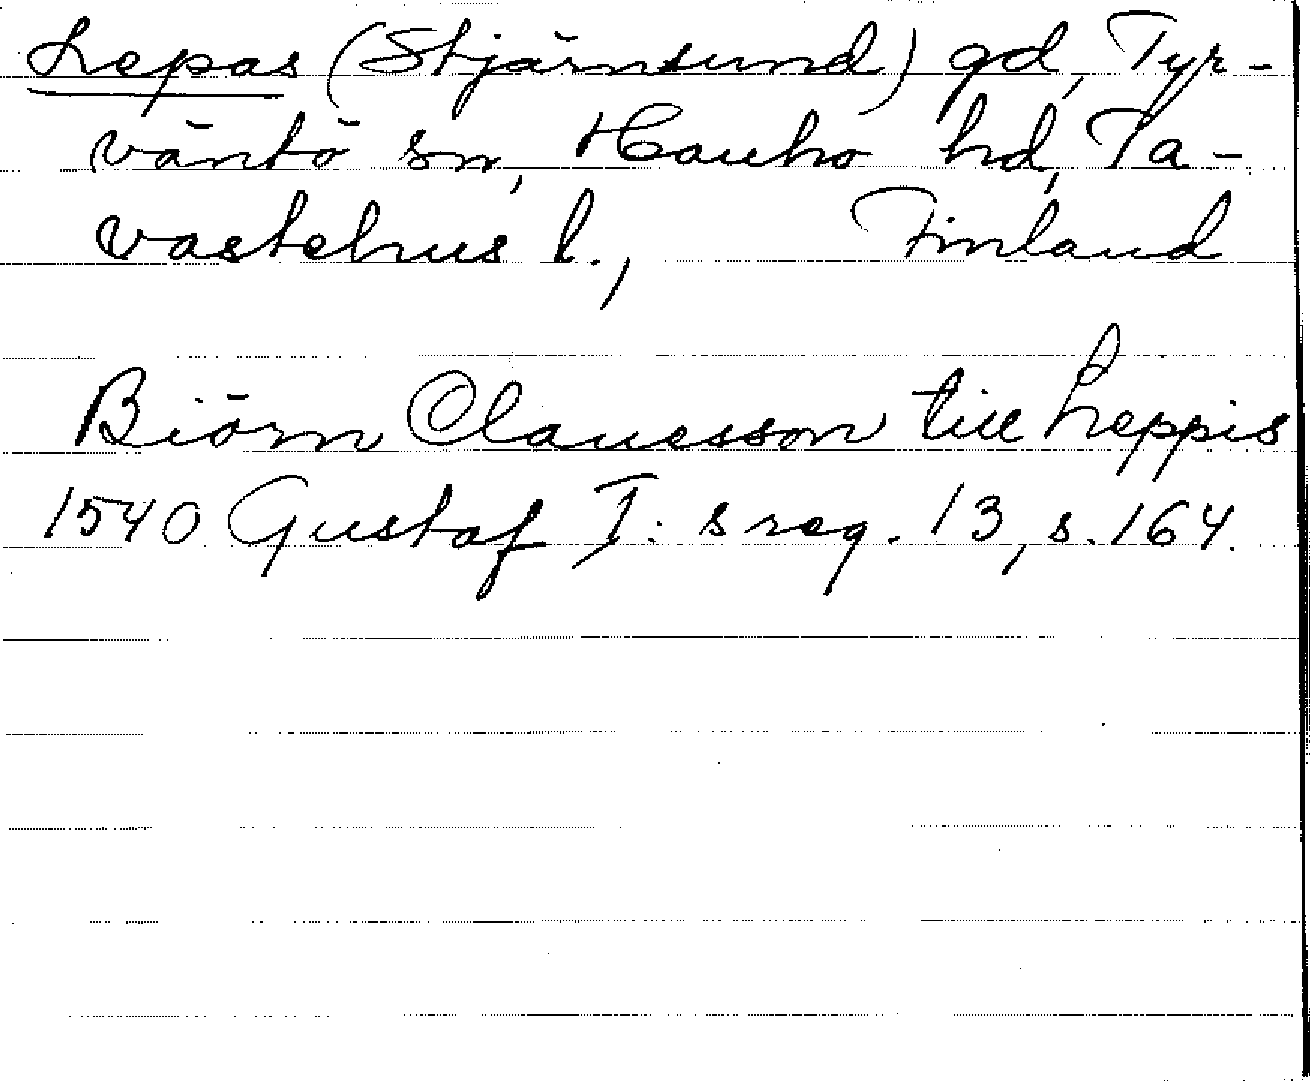 Lepas (Stjärnsund) gd, Tyr-
väntö sn, Hauho hd, Ta-
vastehus l., Finland
Biörn Clauesson till Leppis
1540 Gustaf I:s reg. 13, s. 164.